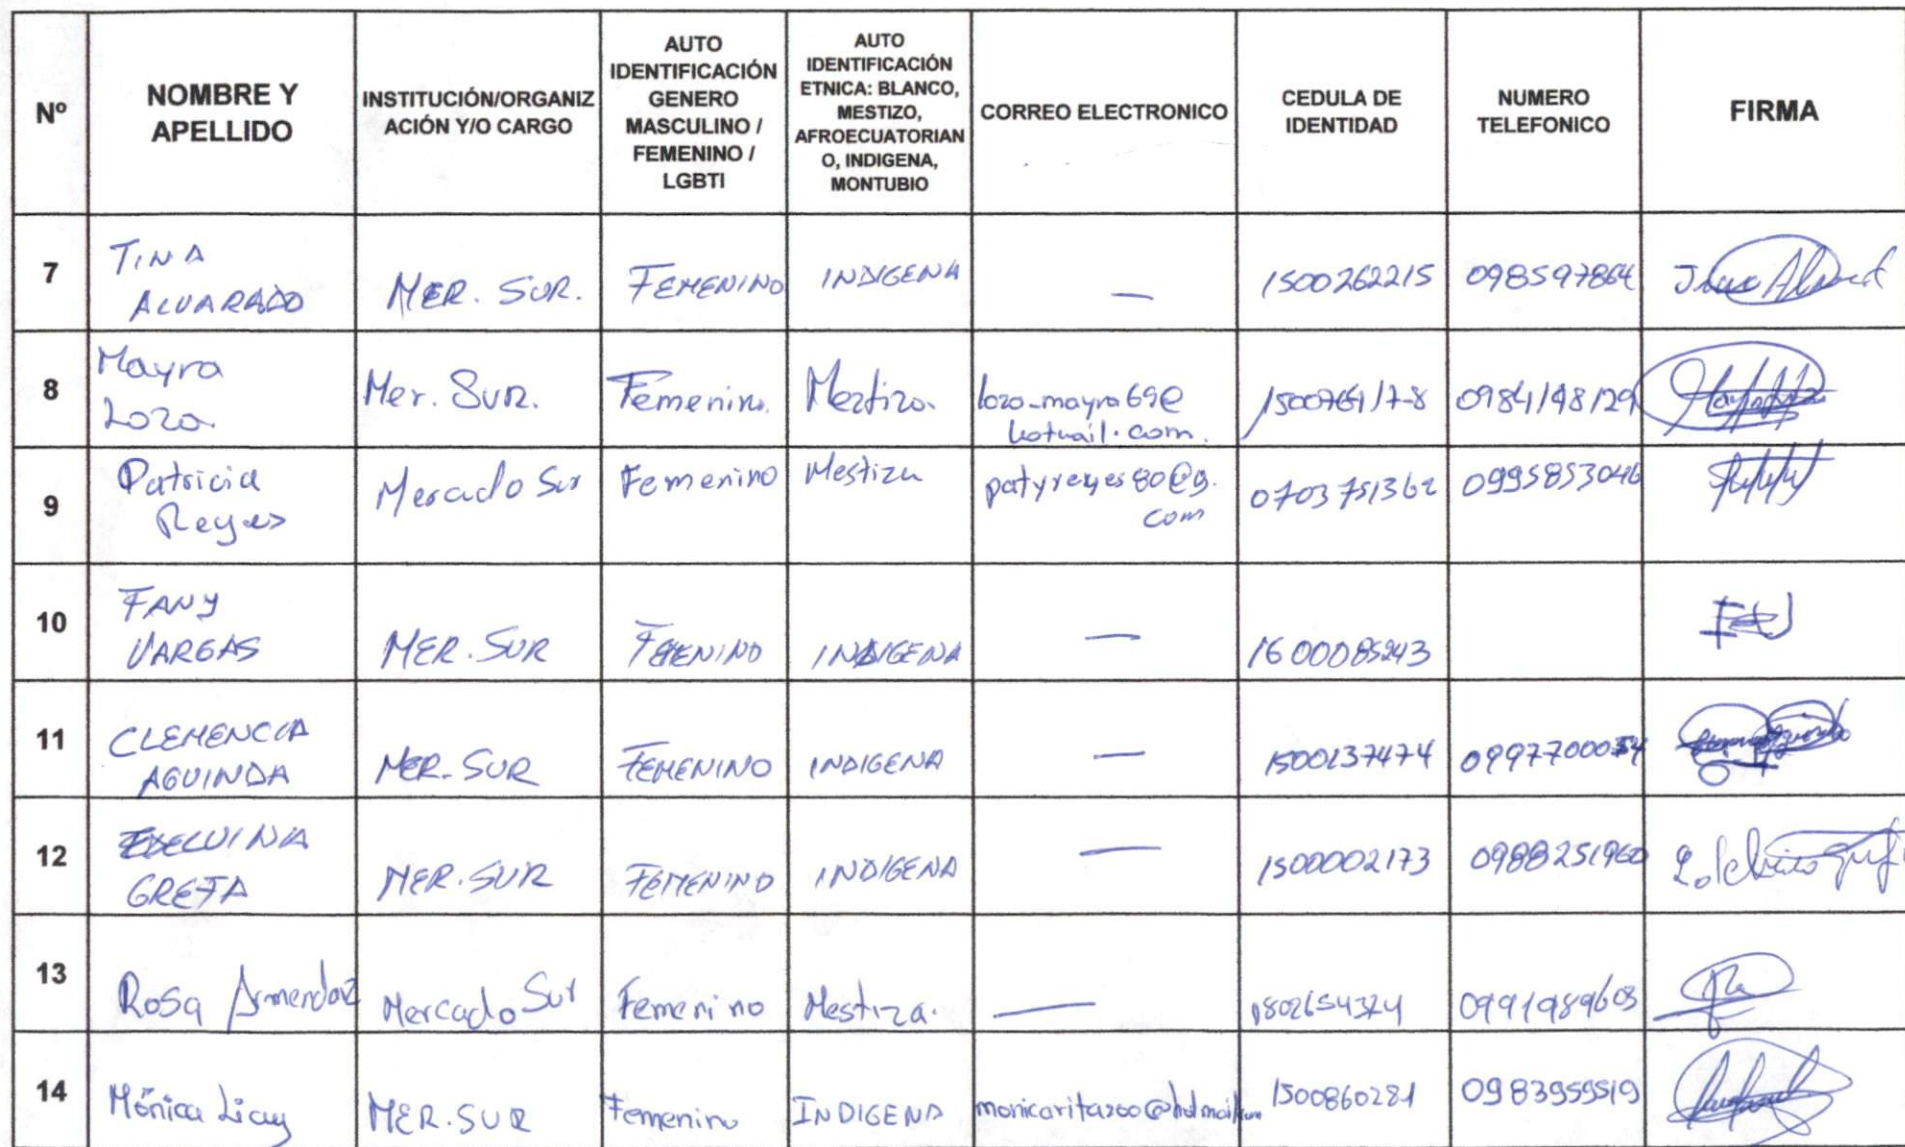 Nº
NOMBRE Y
APELLIDO
INSTITUCIÓN/ORGANIZ
ACIÓN Y/O CARGO
AUTO
IDENTIFICACIÓN
GENERO
MASCULINO /
FEMENINO /
LGBTI
AUTO
IDENTIFICACIÓN
ETNICA: BLANCO,
MESTIZO,
AFROECUATORIAN
O, INDIGENA,
MONTUBIO
CORREO ELECTRONICO
CEDULA DE
IDENTIDAD
NUMERO
TELEFONICO
FIRMA
7
TINA
ALVARADO
MER. SUR.
FEMENINO
INDIGENA
—
1500262215
098597864
8
Mayra
Loza
Mer. Sur.
Femenino.
Meztizo.
lozo_mayra69@
hotmail.com.
0984198129
9
Patricia
Reyes
Mercado Sur
Femenino
Mestiza
patyreyes80@g.
com
0703751362
0995853046
10
FANY
VARGAS
MER. SUR
FEMENINO
INDIGENA
—
1600085243
11
CLEMENCIA
AGUINDA
MER. SUR
FEMENINO
INDIGENA
—
1500137474
12
GREFA
MER. SUR
FEMENINO
INDIGENA
—
1500002173
0988251960
13
Rosa Armendariz
Mercado Sur
Femenino
Mestiza.
—
0991989603
14
Mónica Licuy
MER. SUR
Femenino
INDIGENA
monicarita200@hotmail.com
1500860281
0983959519